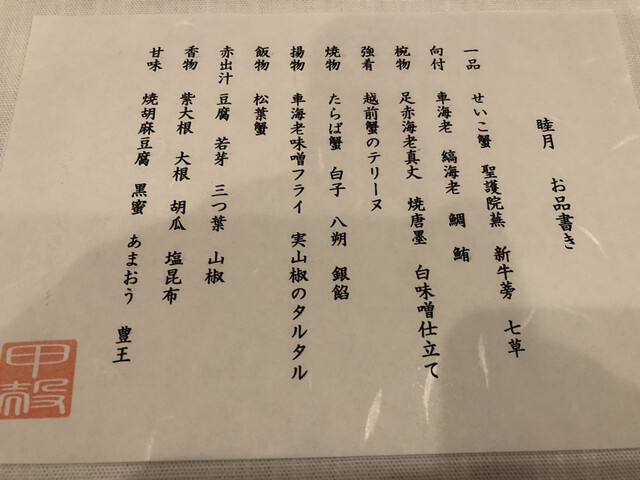 睦月 お品書き
一品 せいこ蟹 聖護院蕪 新牛蒡 七草
向付 車海老 縞海老 鯛 鮪
椀物 足赤海老真丈 焼唐墨 白味噌仕立て
強肴 越前蟹のテリーヌ
焼物 たらば蟹 白子 八朔 銀餡
揚物 車海老味噌フライ 実山椒のタルタル
飯物 松葉蟹
赤出汁 豆腐 若芽 三つ葉 山椒
香物 紫大根 大根 胡瓜 塩昆布
甘味 焼胡麻豆腐 黒蜜 あまおう 豊王
甲殻